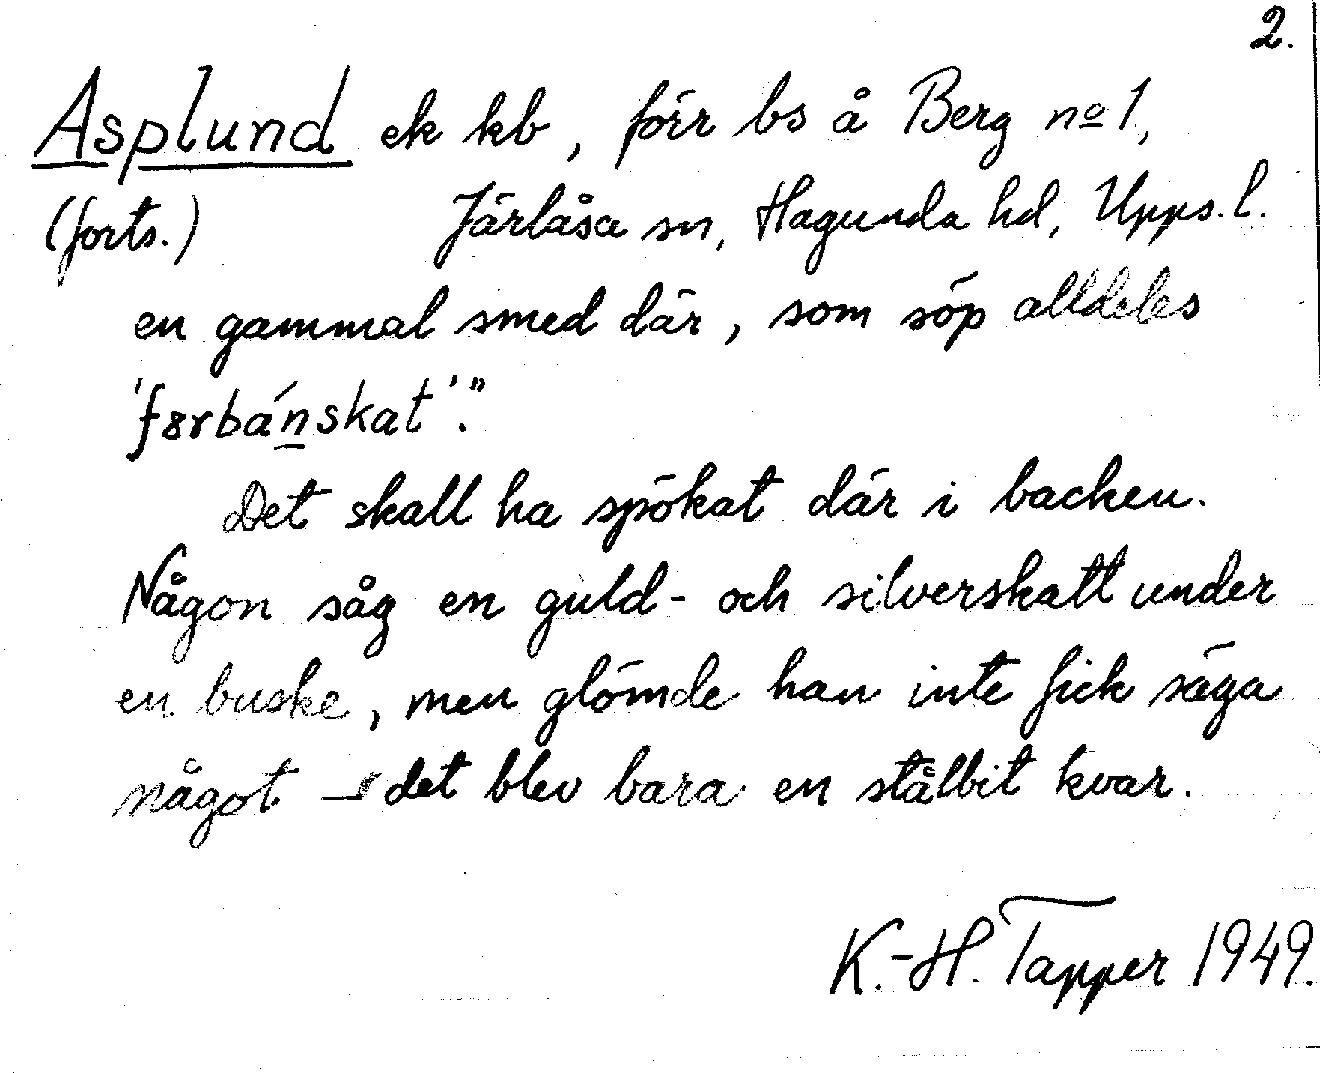 2.
Asplund ek kb, förr bs å Berg no 1,
(forts.) Järlåsa sn, Hagunda hd, Upps. l.
en gammal smed där, som söp alldeles
'fɵrbánskat'."
Det skall ha spökat där i backen.
Någon såg en guld- och silverskatt under
en buske, men glömde han inte fick säga
något – det blev bara en stålbit kvar.
K.-H. Tapper 1949.